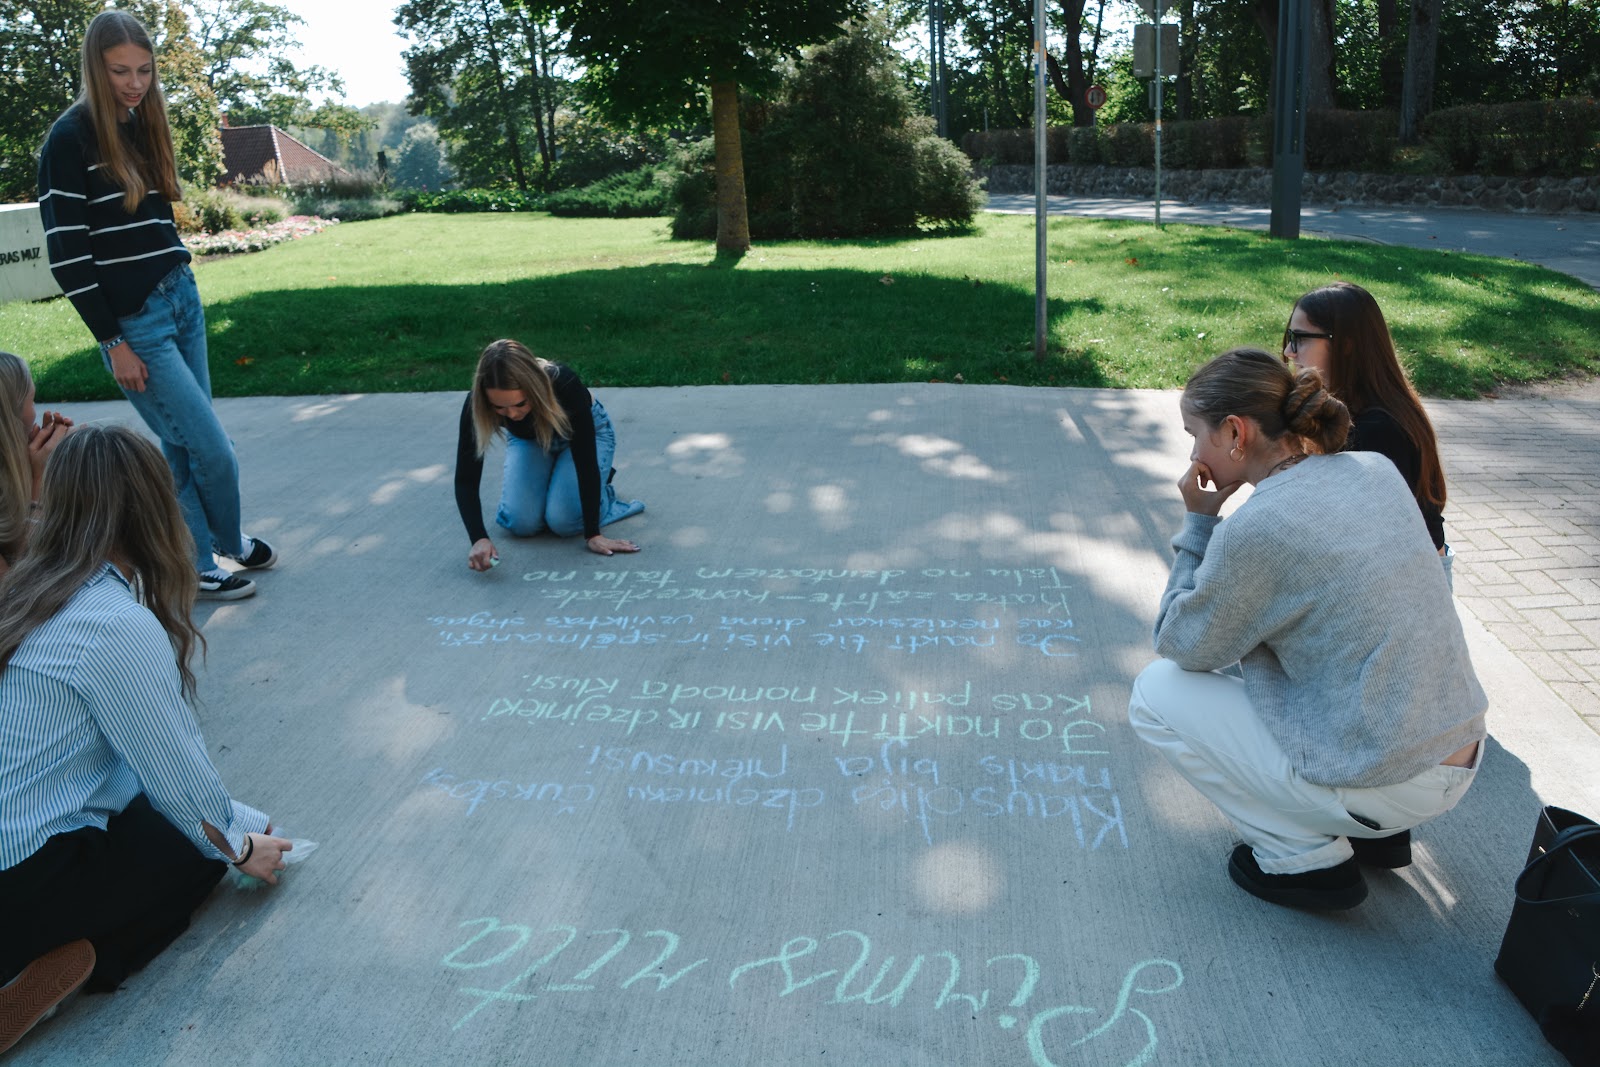 ERAS MUZ
Pirms rīta
Klausoties dzejnieku čukstos,
nakts bija piekususi.
Jo naktī tie visi ir dzejnieki
kas paliek nomodā klusi.
Jo naktī tie visi ir spēlmanīši,
kas neaizskar dienā uzvilktās stīgas.
Katra zālīte - koncertzāle.
Tālu no tālu no